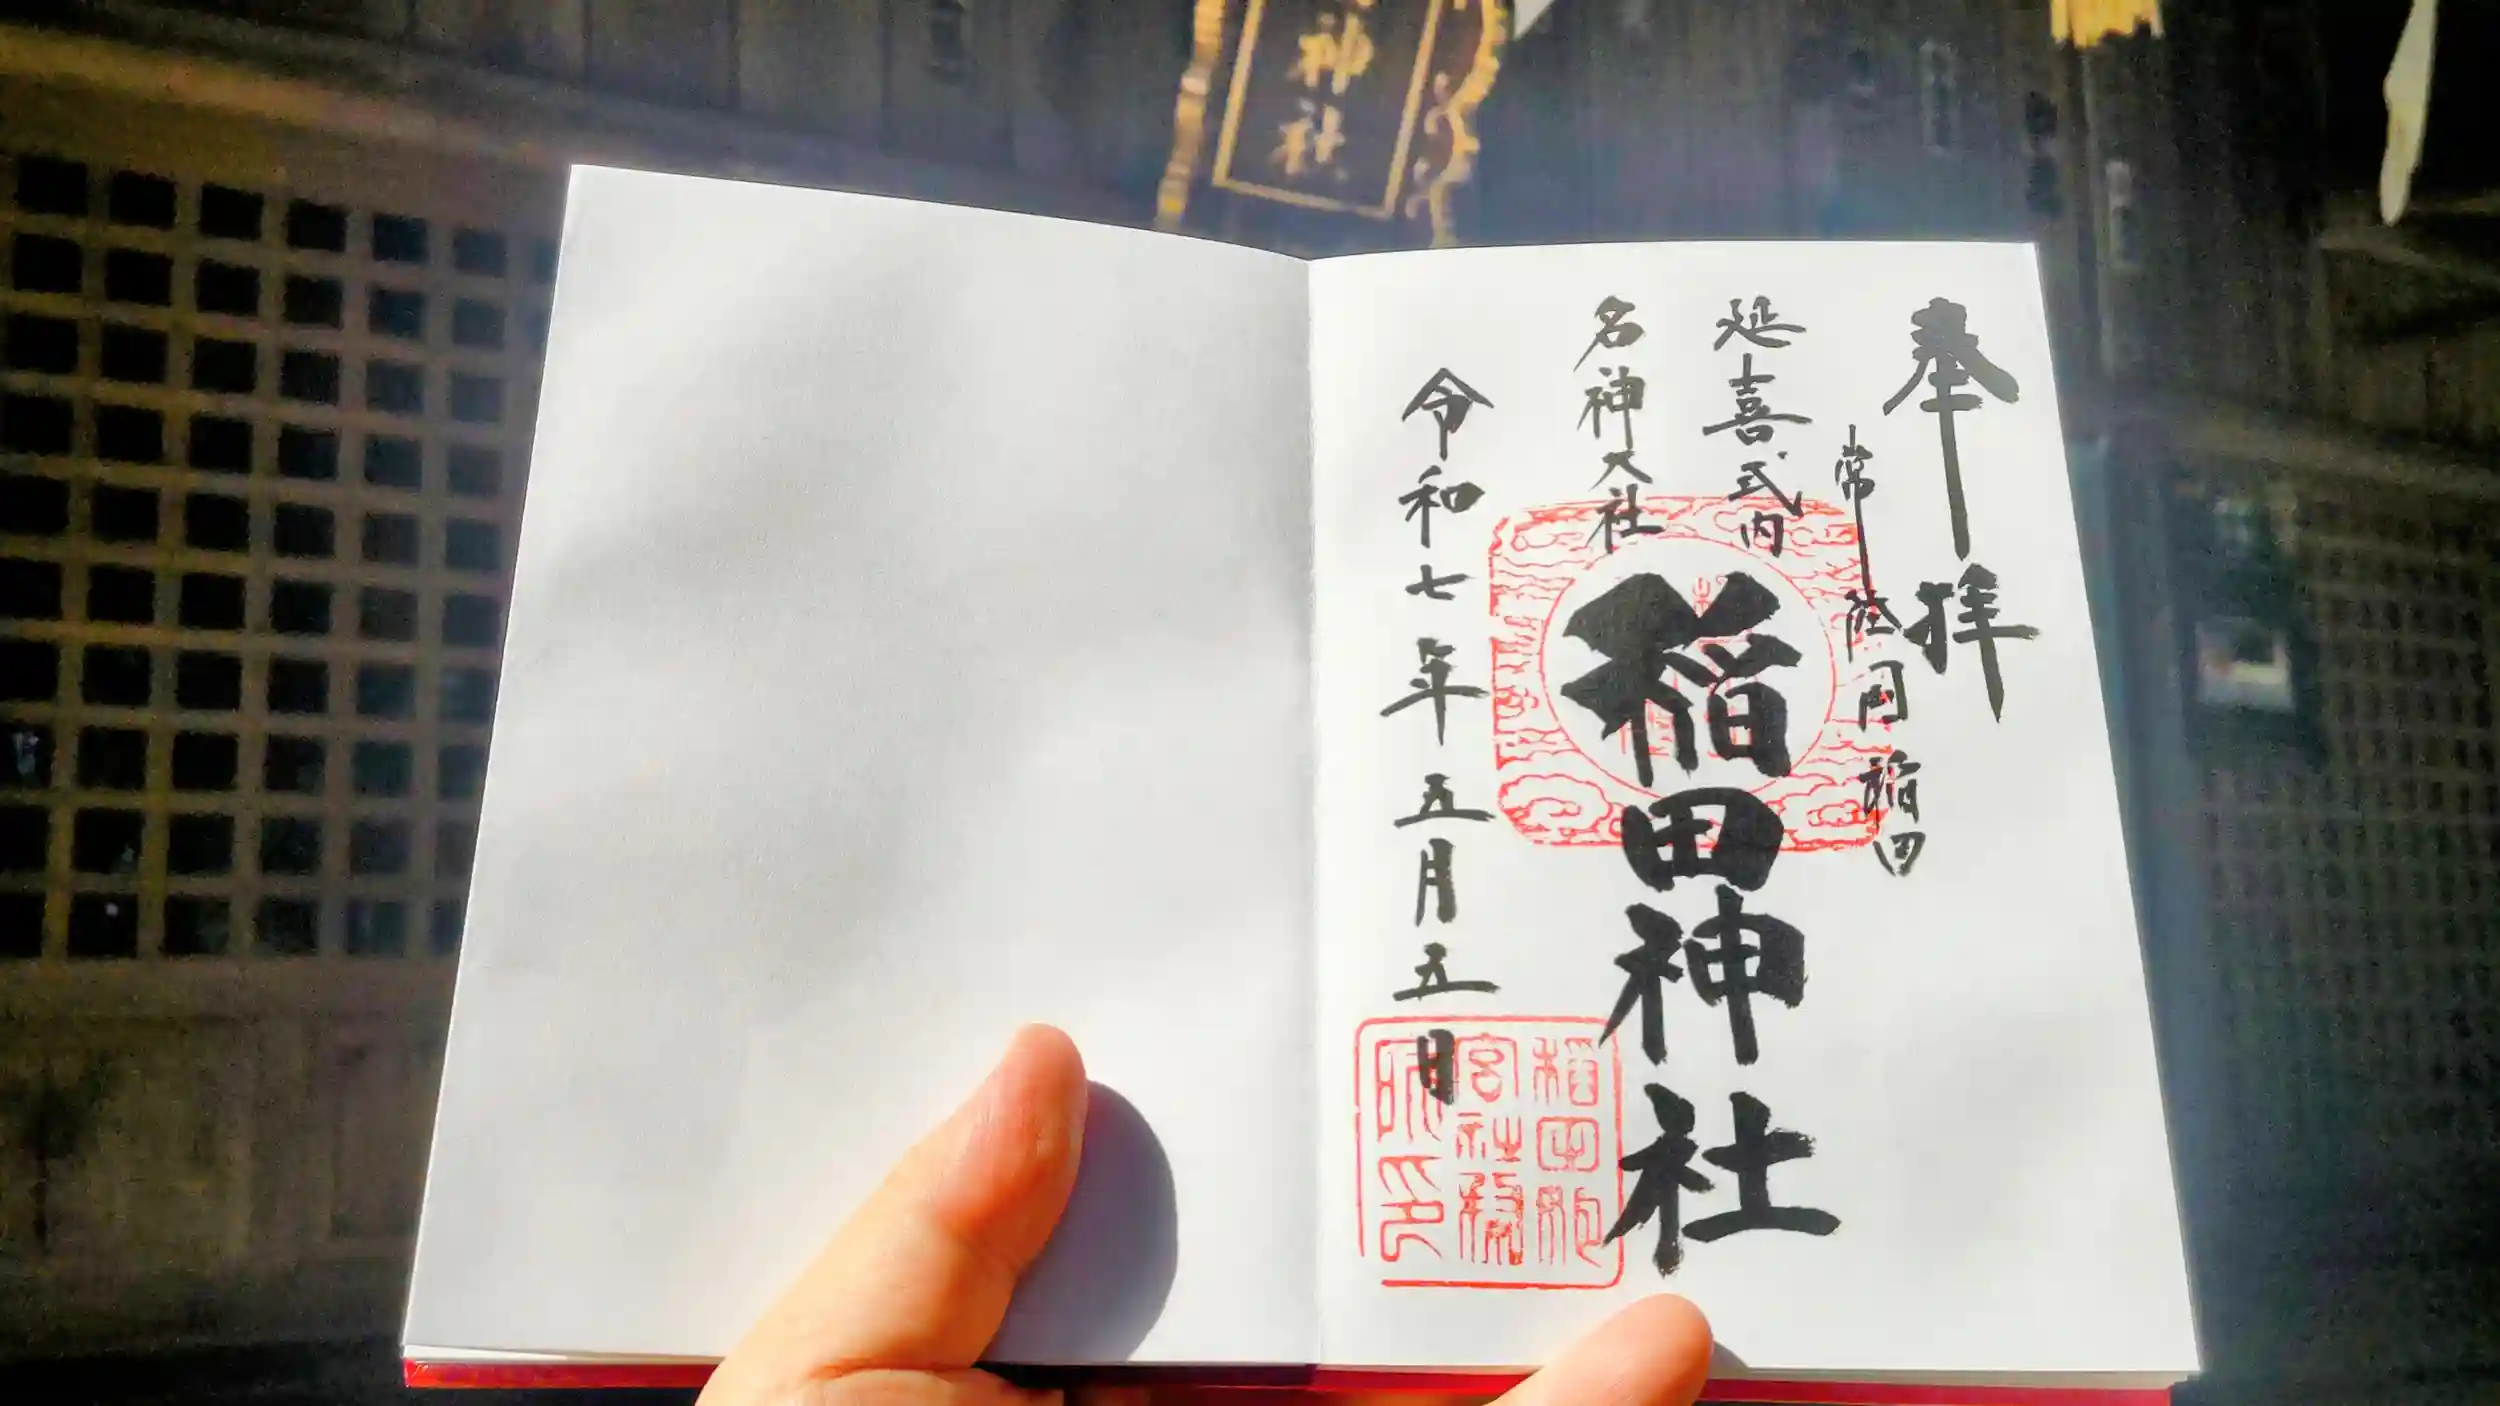 神社
奉拝
常陸国稲田
延喜式内
名神大社
稲田神社
令和七年五月五日
稲田姫
宮社務
所印